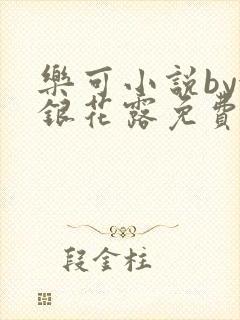 樂可小說by
銀花露免費
段金柱